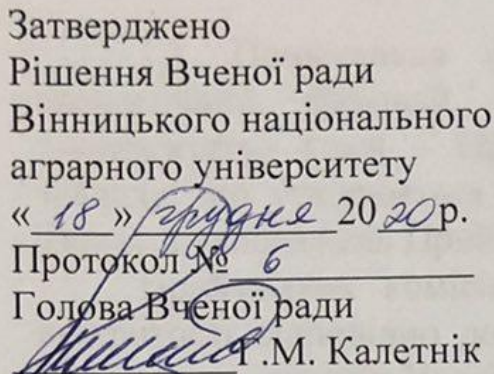 Затверджено
Рішення Вченої ради
Вінницького національного
аграрного університету
«18» грудня 2020р.
Протокол № 6
Голова Вченої ради
Г.М. Калетнік